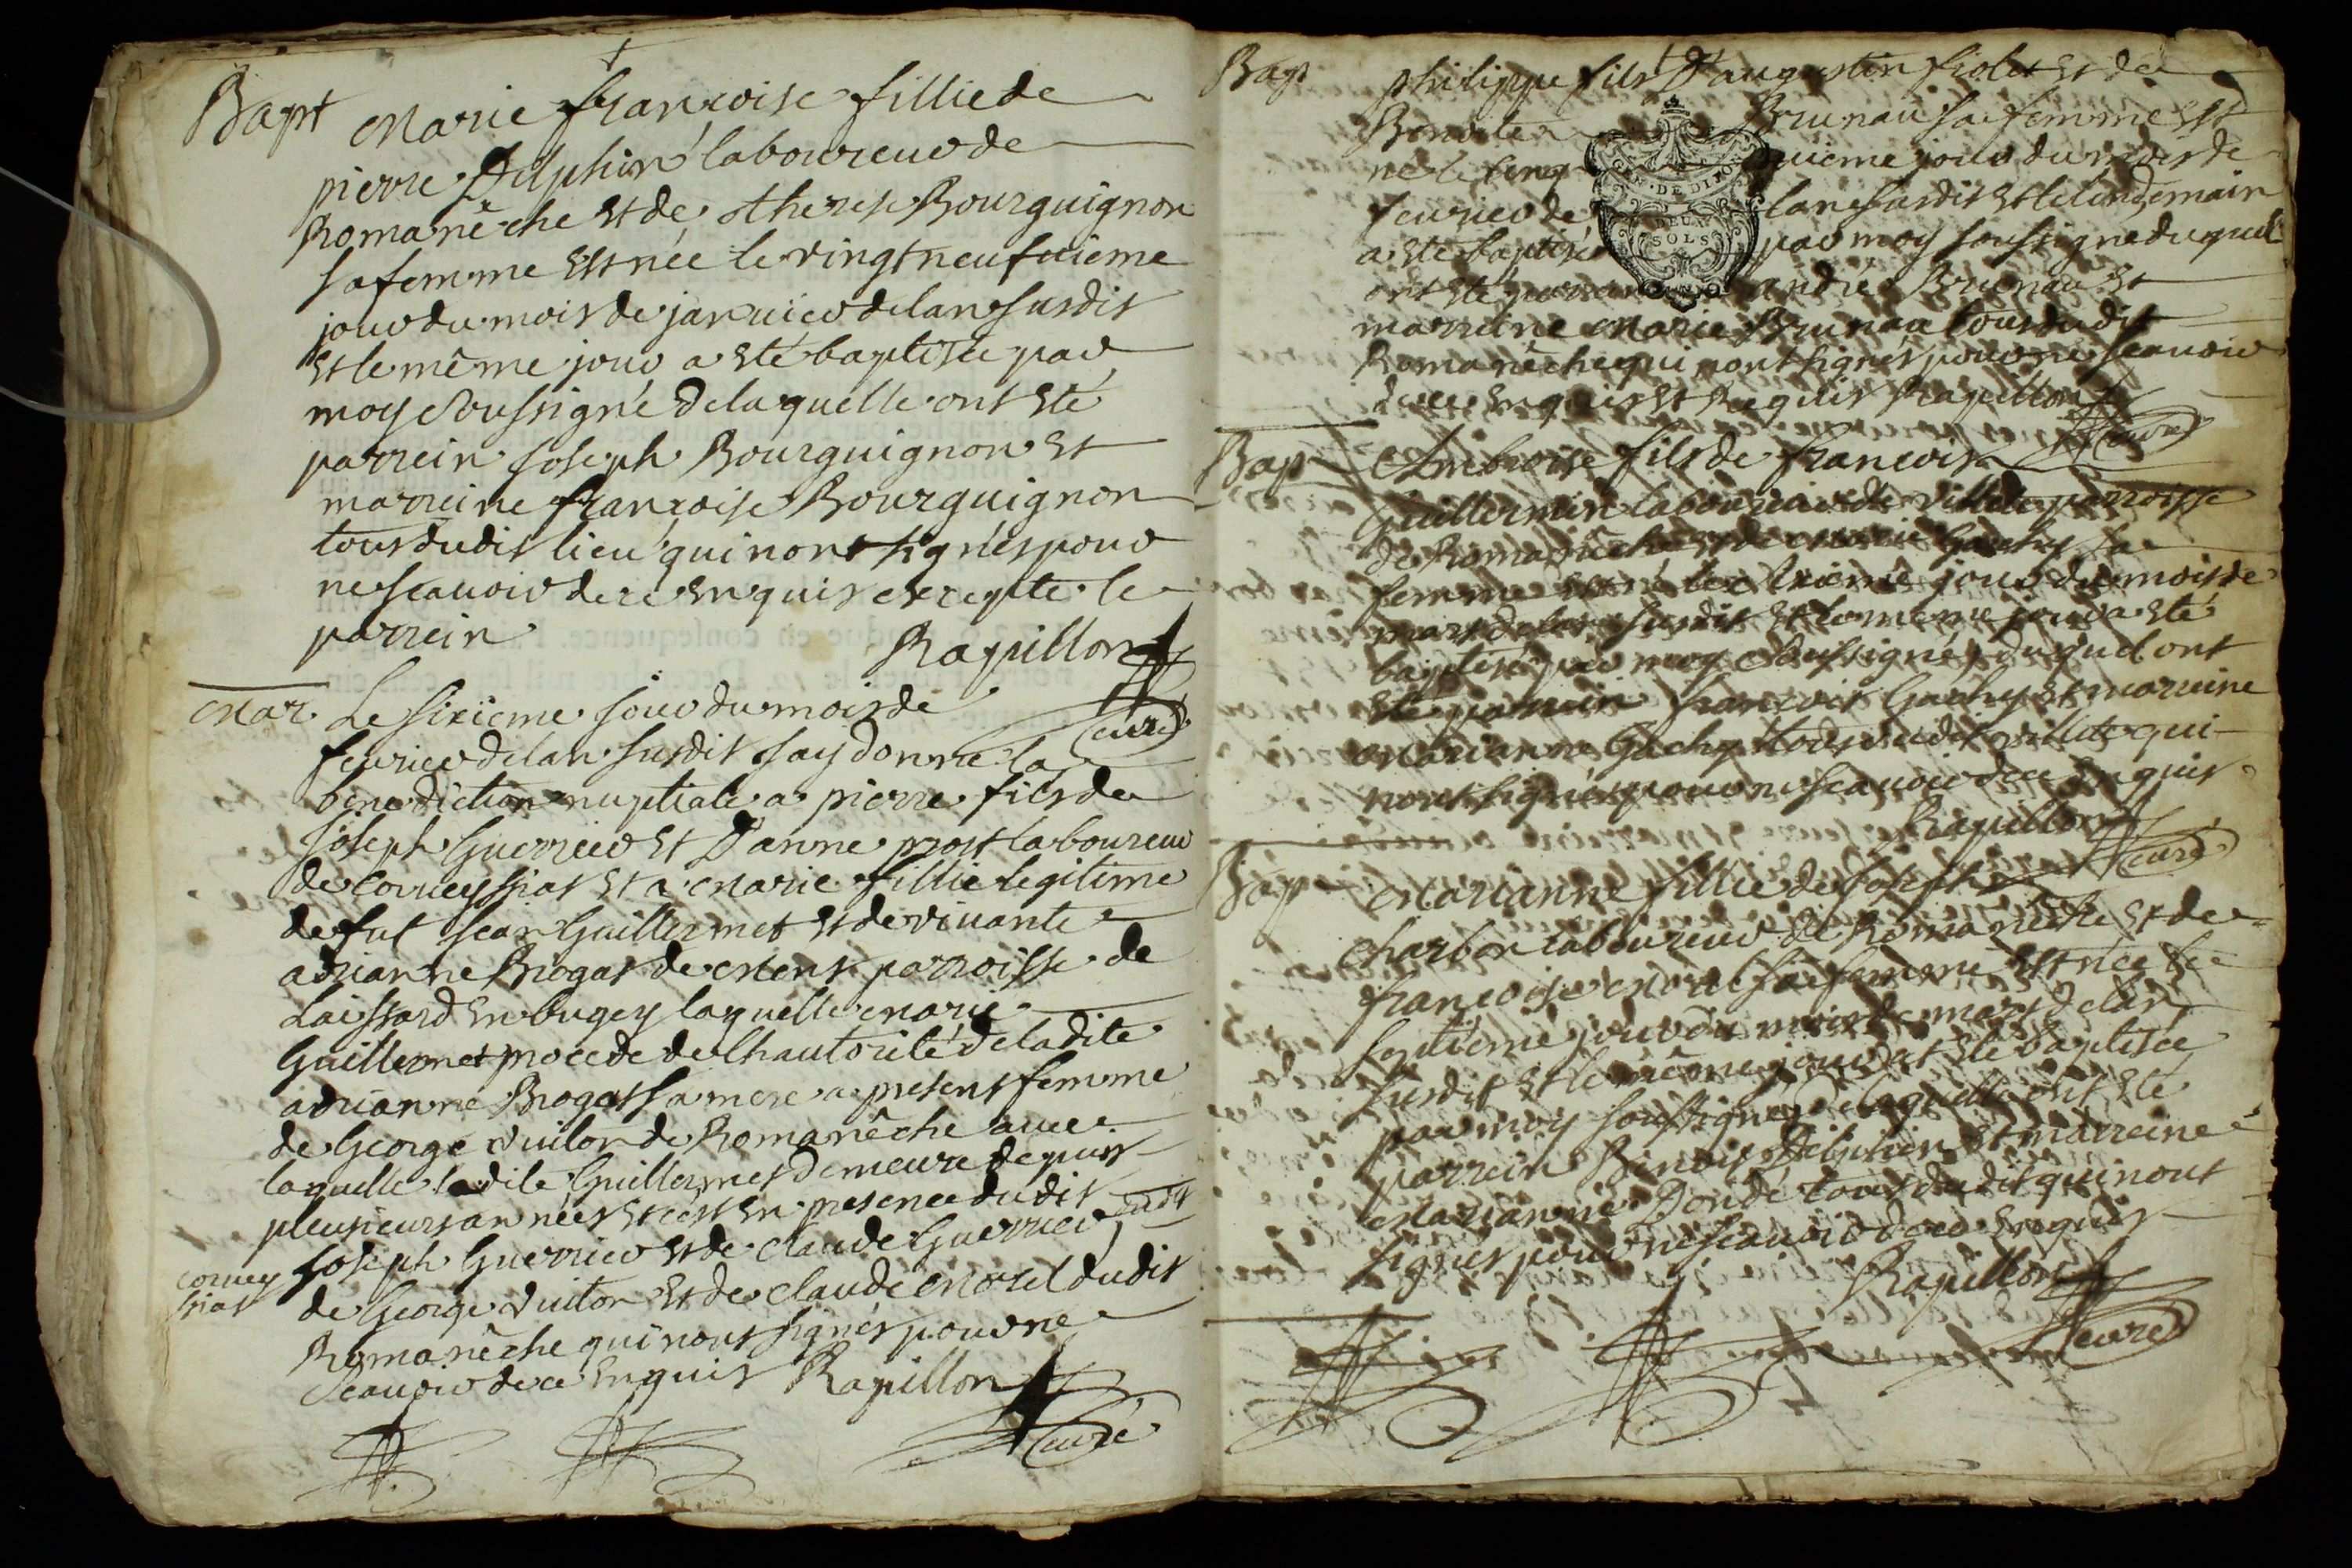 Bapt Marie françoise fillie de
pierre Delphin laboureur de
Romanêche et de therese Bourguignon
sa femme est née le vingtneufuieme
jour du mois de januier de lan susdit
et le même jour a esté baptisée par
moy soussigné de laquelle ont esté
parrein Joseph Bourguignon et
marreine françoise Bourguignon
tous dudit lieu qui nont signés pour
ne scauoir de ce enquis excepte le
parrein Rapillon
curé
Mar. Le sixieme jour du mois de
feurier de lan susdit jay donné la
benediction nuptiale a pierre fils de
Joseph Guerrier et D'anne prost laboureur
de Corueyssiat et a Marie fillie legitime
de fut Jean Guillermet et de viuante
adrianne Brogat de Mens parroisse de
Laissard en bugey laquelle marie
Guillermet procede de lhautorité de ladite
adrianne Brogat sa mere a present femme
de George Vuiton de Romanêche auec
laquelle ladite Guillermet demeure depuis
pleusieurs années et cest en presence dudit
Joseph Guerrier et de Claude Guerrier dudit
coruey
siat
de George Vuiton et de Claude Morel dudit
Romanêche qui nont signés pour ne
scauoir de ce enquis Rapillon
curé
Bap philippe fils D'augustin fiolet et de
Benoite Brunau sa femme est
né le cinq uieme jour du mois de
feurier de lan susdit et le lendemain
a esté baptisé par moy soussigné duquel
ont esté parrain andré Brunau et
marreine Marie Brunau tous dudit
Romanêche qui nont signés pour ne scauoir
de ce enquis et requis Rapillon
curé
GEN. DE DIJON
DEUX
SOLS
Bap Ambroise fils de françois
Guillermin laboureur de villete parroisse
de Romanêche et de Marie Gachy sa
femme est né le sixieme jour du mois de
mars de lan susdit et le meme jour a esté
baptisé par moy soussigné duquel ont
esté parrain françois Gachy et marreine
Marianne Gachy tous dudit villete qui
nont signés pour ne scauoir de ce enquis
Rapillon
curé
Bap Marianne fillie de Joseph
Charbon laboureur de Romanêche et de
françoise Morel sa femme est née le
septieme jour du mois de mars de lan
susdit et le même jour at esté baptisée
par moy soussigné de laquelle ont esté
parrein Benoit Delphin et marreine
Marianne Dondé tous dudit qui nont
signés pour ne scauoir de ce enquis
Rapillon
curé